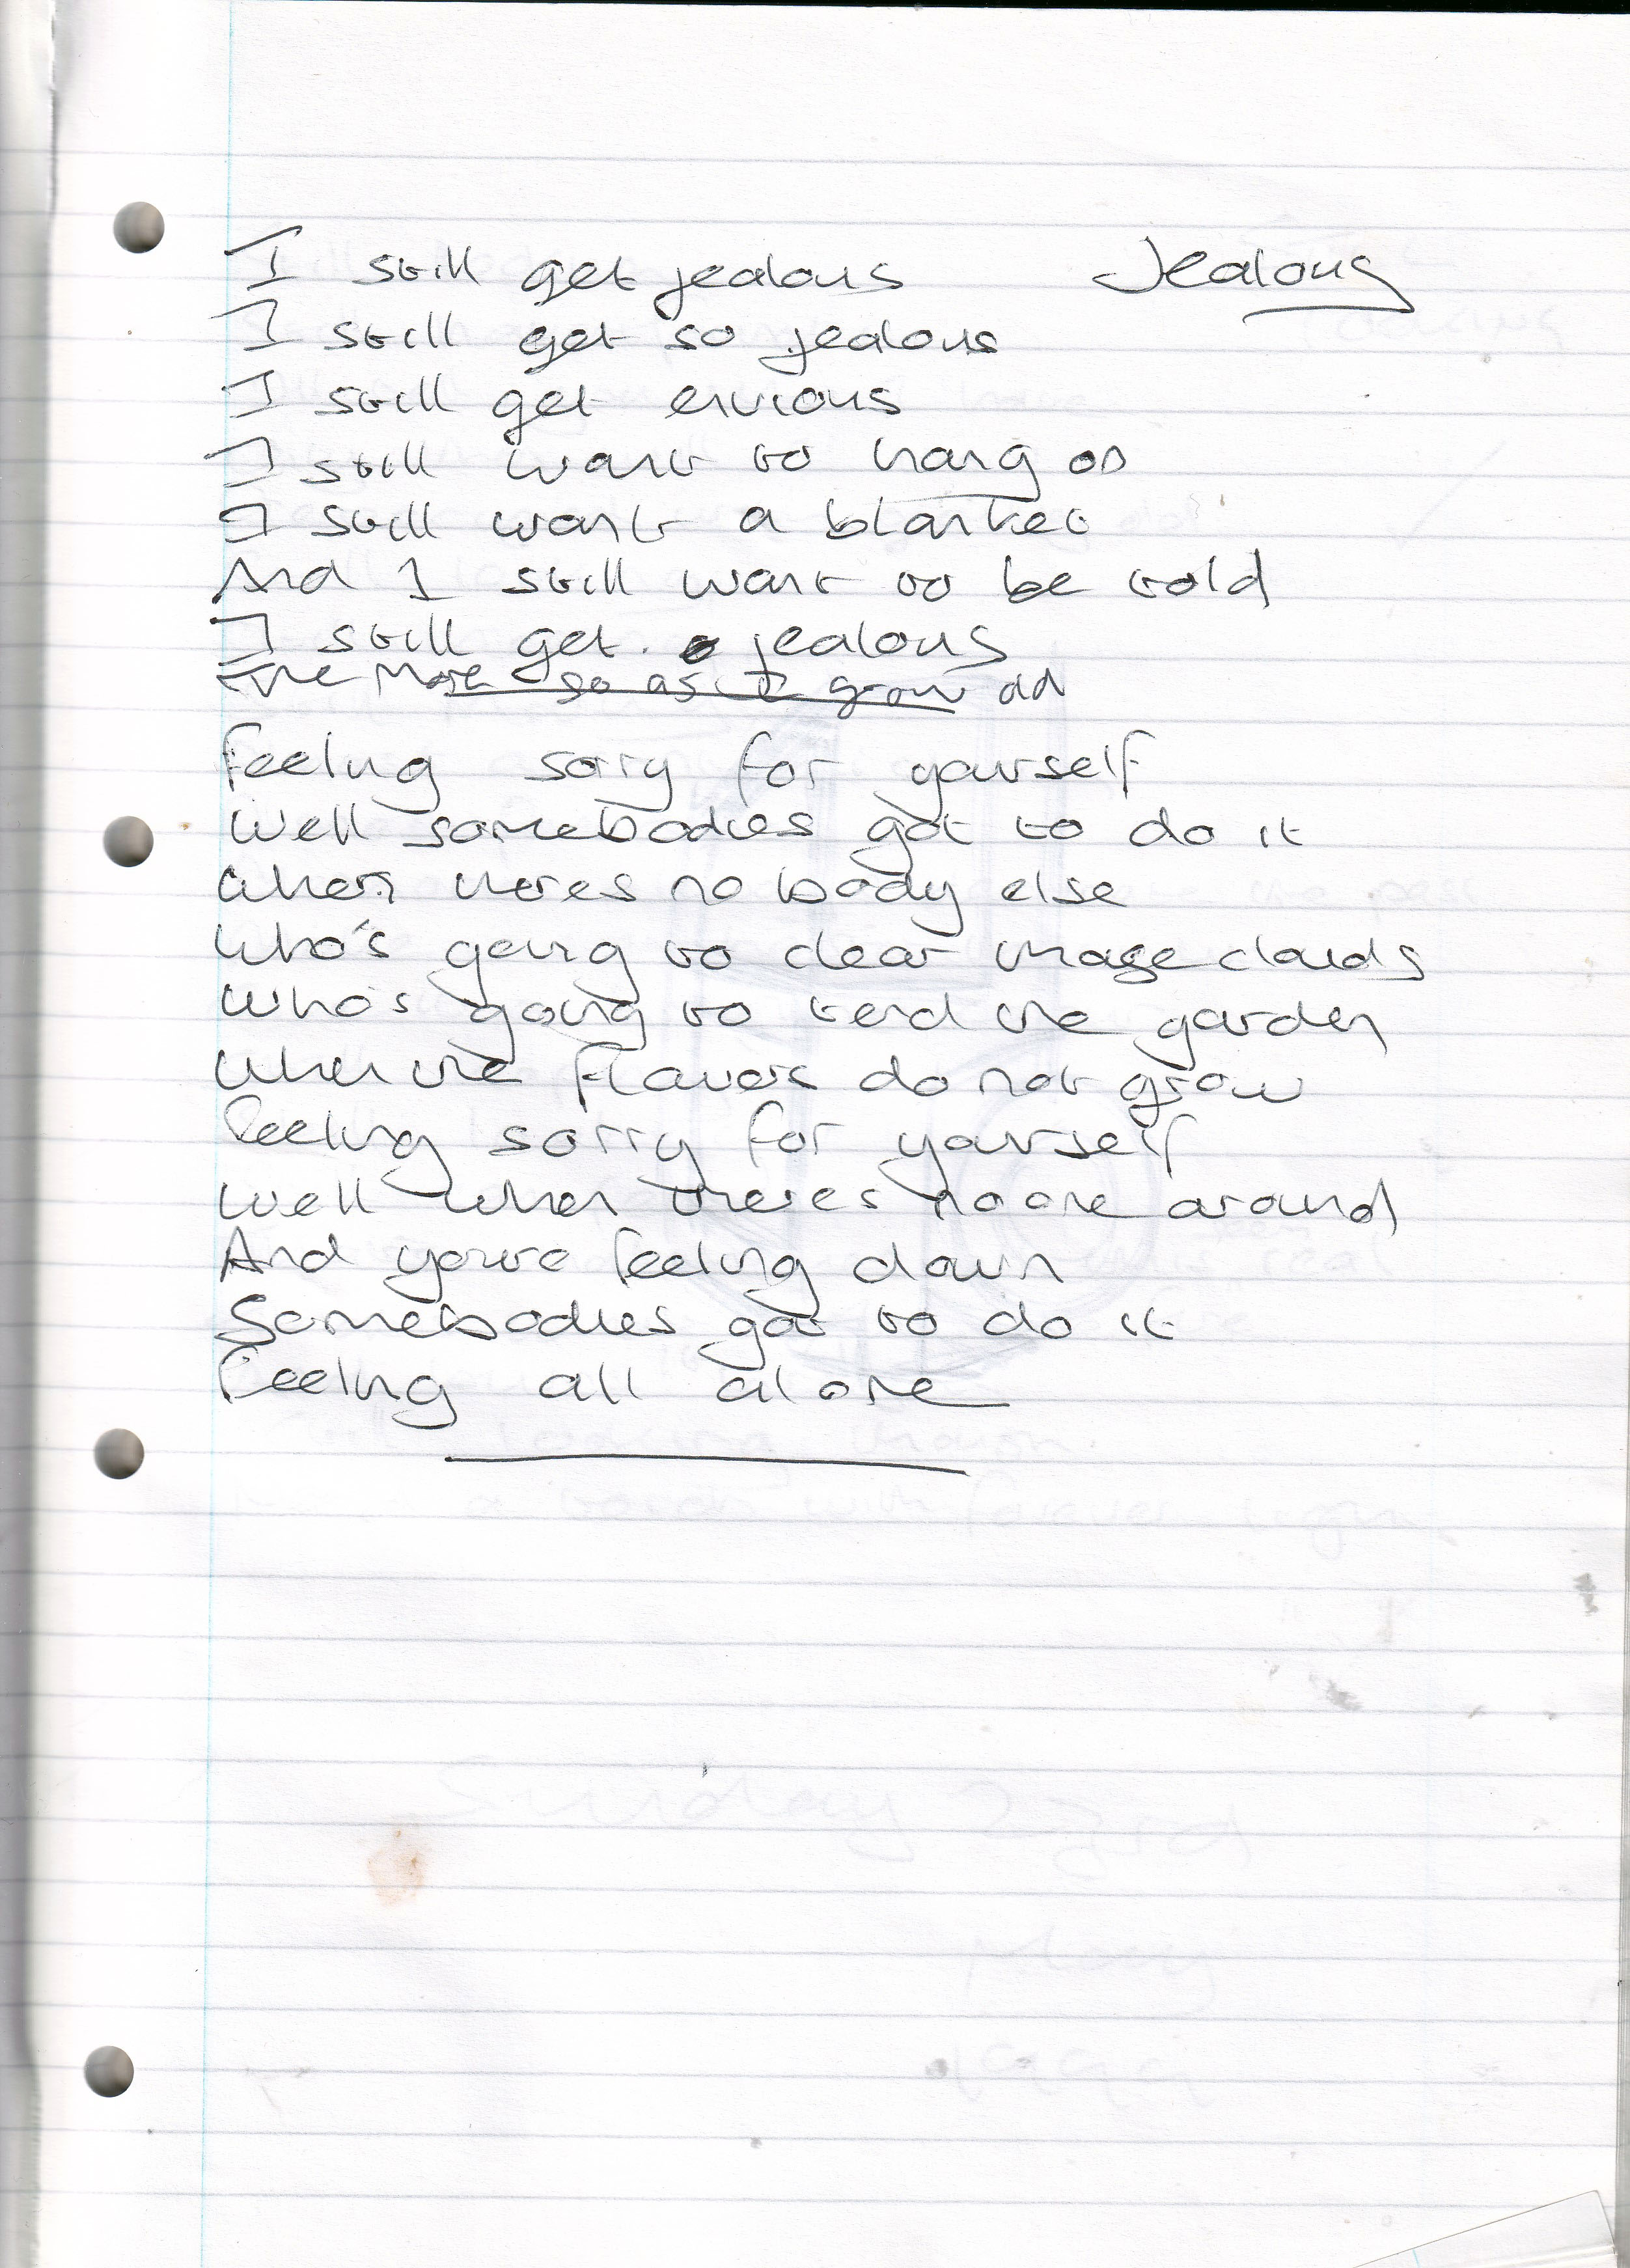 I still get jealous Jealous
I still get so jealous
I still get envious
I still want to hang on
I still want a blanket
And I still want to be told
I still get jealous
The more so as I grow old
Feeling sorry for yourself
Well somebodies got to do it
When theres no body else
Who's going to clear those clouds
Who's going to tend the garden
When the flowers do not grow
Feeling sorry for yourself
Well when theres no one around
And youre feeling down
Somebodies got to do it
Feeling all alone